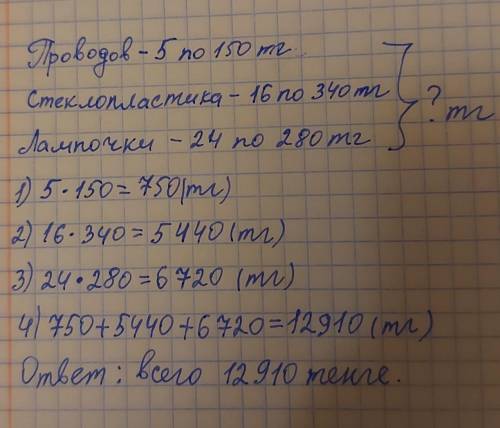 Проводов - 5 по 150 тг.
Стеклопластика - 16 по 340 тг
Лампочки - 24 по 280 тг
? тг
1) 5·150=750(тг)
2) 16·340=5440(тг)
3) 24·280=6720 (тг)
4) 750+5440+6720=12910(тг)
Ответ: всего 12910 тенге.